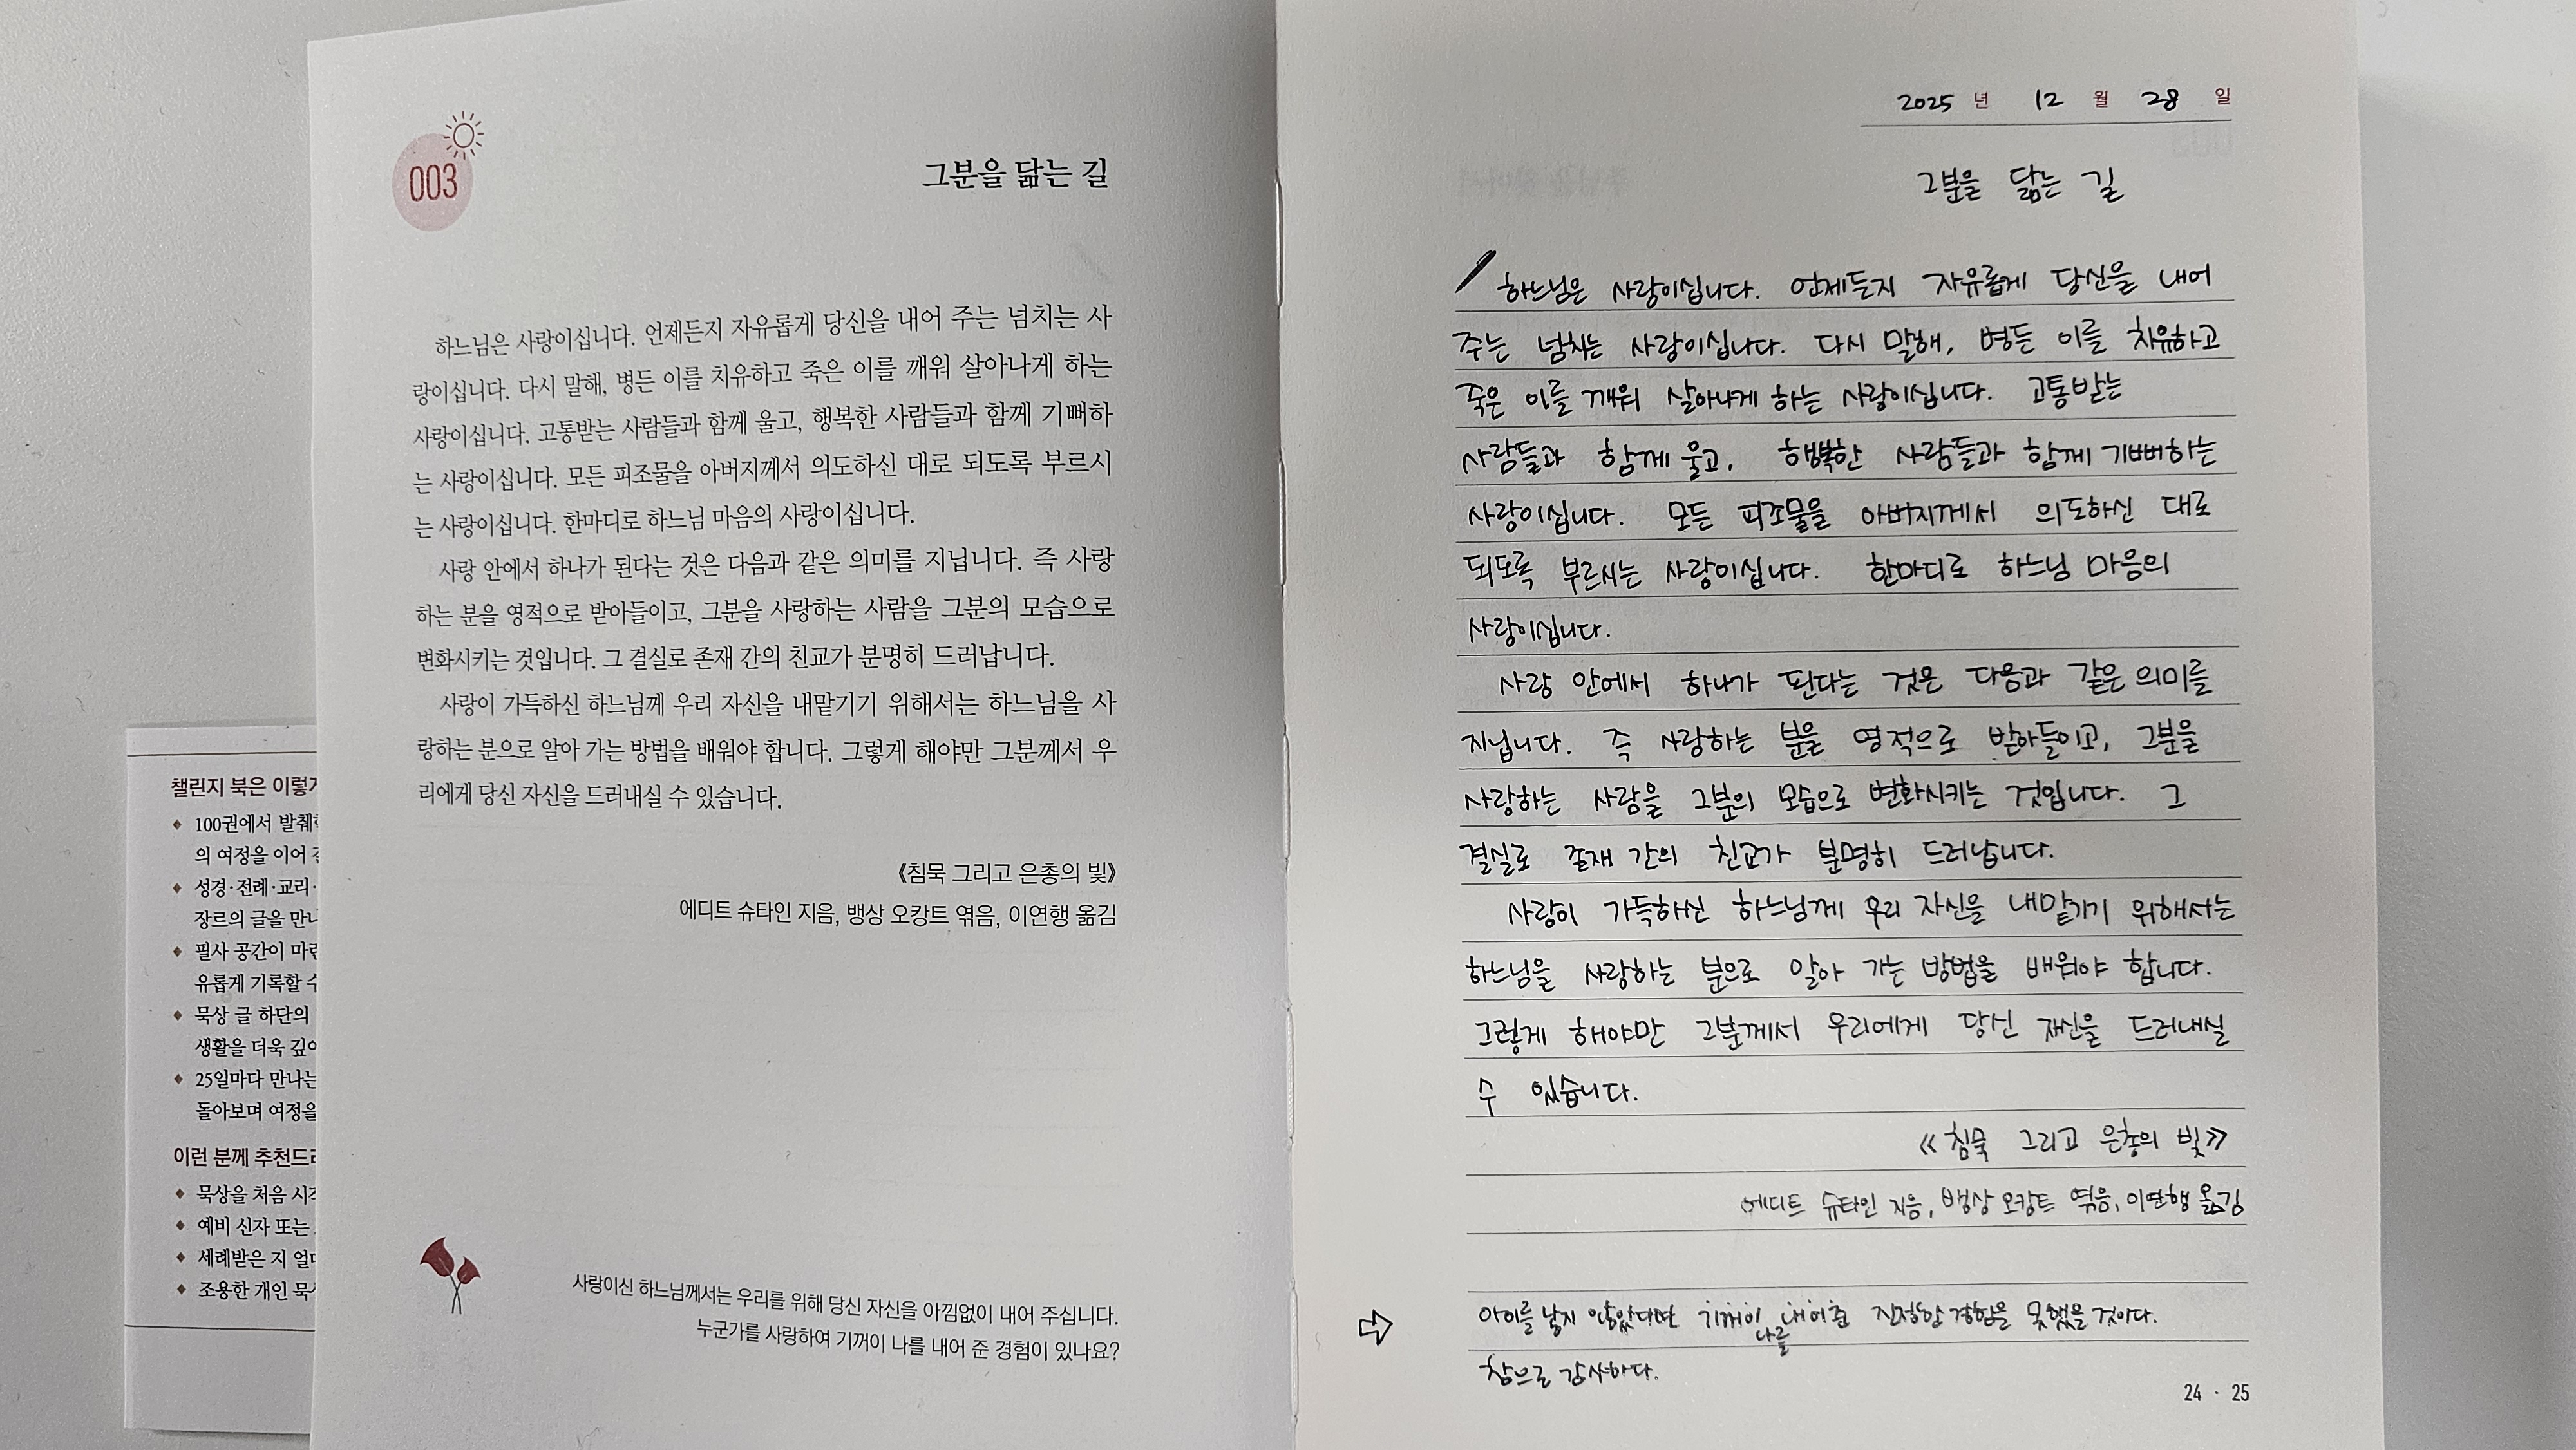 003
그분을 닮는 길
하느님은 사랑이십니다. 언제든지 자유롭게 당신을 내어 주는 넘치는 사
랑이십니다. 다시 말해, 병든 이를 치유하고 죽은 이를 깨워 살아나게 하는
사랑이십니다. 고통받는 사람들과 함께 울고, 행복한 사람들과 함께 기뻐하
는 사랑이십니다. 모든 피조물을 아버지께서 의도하신 대로 되도록 부르시
는 사랑이십니다. 한마디로 하느님 마음의 사랑이십니다.
사랑 안에서 하나가 된다는 것은 다음과 같은 의미를 지닙니다. 즉 사랑
하는 분을 영적으로 받아들이고, 그분을 사랑하는 사람을 그분의 모습으로
변화시키는 것입니다. 그 결실로 존재 간의 친교가 분명히 드러납니다.
사랑이 가득하신 하느님께 우리 자신을 내맡기기 위해서는 하느님을 사
랑하는 분으로 알아 가는 방법을 배워야 합니다. 그렇게 해야만 그분께서 우
리에게 당신 자신을 드러내실 수 있습니다.
《침묵 그리고 은총의 빛》
에디트 슈타인 지음, 뱅상 오캉트 엮음, 이연행 옮김
사랑이신 하느님께서는 우리를 위해 당신 자신을 아낌없이 내어 주십니다.
누군가를 사랑하여 기꺼이 나를 내어 준 경험이 있나요?
챌린지 북은 이렇게
100권에서 발췌
의 여정을 이어
성경·전례·교리·
장르의 글을 만나
필사 공간이 마련
유롭게 기록할 수
묵상 글 하단의
생활을 더욱 깊이
25일마다 만나는
돌아보며 여정을
이런 분께 추천드려
묵상을 처음 시작
예비 신자 또는
세례받은 지 얼마
조용한 개인 묵상
2025 년 12 월 28 일
그분을 닮는 길
하느님은 사랑이십니다. 언제든지 자유롭게 당신을 내어
주는 넘치는 사랑이십니다. 다시 말해, 병든 이를 치유하고
죽은 이를 깨워 살아나게 하는 사랑이십니다. 고통받는
사람들과 함께 울고, 행복한 사람들과 함께 기뻐하는
사랑이십니다. 모든 피조물을 아버지께서 의도하신 대로
되도록 부르시는 사랑이십니다. 한마디로 하느님 마음의
사랑이십니다.
사랑 안에서 하나가 된다는 것은 다음과 같은 의미를
지닙니다. 즉 사랑하는 분을 영적으로 받아들이고, 그분을
사랑하는 사람을 그분의 모습으로 변화시키는 것입니다. 그
결실로 존재 간의 친교가 분명히 드러납니다.
사랑이 가득하신 하느님께 우리 자신을 내맡기기 위해서는
하느님을 사랑하는 분으로 알아 가는 방법을 배워야 합니다.
그렇게 해야만 그분께서 우리에게 당신 자신을 드러내실
수 있습니다.
《침묵 그리고 은총의 빛》
에디트 슈타인 지음, 뱅상 오캉트 엮음, 이연행 옮김
아이를 낳지 않았다면 기꺼이 나를 내어준 진정한 경험을 못했을 것이다.
참으로 감사하다.
24 · 25